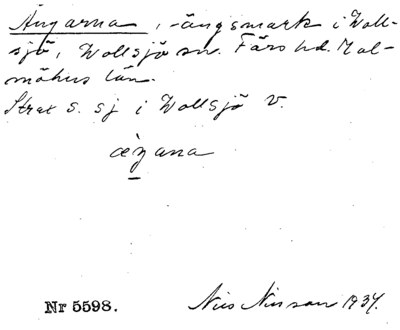 Ängarna, -ängsmark i Woll-
sjö, Wollsjö sn. Färs hd. Mal-
möhus län.
Strax s. sj i Wollsjö V.
Nr 5598. Nils Nilsson 1934.